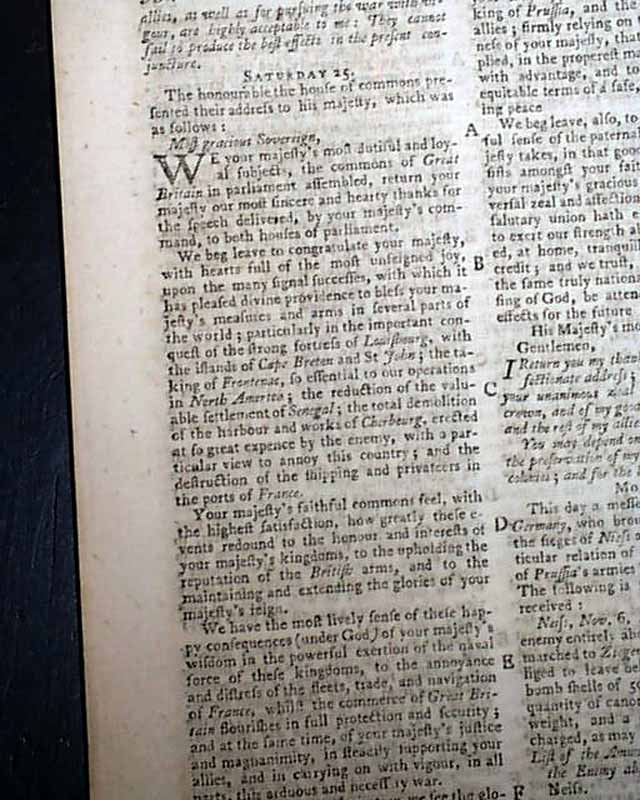 allies, as well as for pursuing the war with vi-
gour, are highly acceptable to me: They cannot
fail to produce the best effects in the present con-
juncture.
SATURDAY 25.
The honourable the house of commons pre-
sented their address to his majesty, which was
as follows:
Most gracious Sovereign,
WE your majesty's most dutiful and loy-
al subjects, the commons of Great
Britain in parliament assembled, return your
majesty our most sincere and hearty thanks for
the speech delivered, by your majesty's com-
mand, to both houses of parliament.
We beg leave to congratulate your majesty,
with hearts full of the most unfeigned joy,
upon the many signal successes, with which it
has pleased divine providence to bless your ma-
jesty's measures and arms in several parts of
the world; particularly in the important con-
quest of the strong fortress of Louisbourg, with
the islands of Cape Breton and St John; the ta-
king of Frontenac, so essential to our operations
in North America; the reduction of the valu-
able settlement of Senegal; the total demolition
of the harbour and works of Cherbourg, erected
at so great expence by the enemy, with a par-
ticular view to annoy this country; and the
destruction of the shipping and privateers in
the ports of France.
Your majesty's faithful commons feel, with
the highest satisfaction, how greatly these e-
vents redound to the honour and interests of
your majesty's kingdoms, to the upholding the
reputation of the British arms, and to the
maintaining and extending the glories of your
majesty's reign.
We have the most lively sense of these hap-
py consequences (under God) of your majesty's
wisdom in the powerful exertion of the naval
force of these kingdoms, to the annoyance
and distress of the fleets, trade, and navigation
of France, whilst the commerce of Great Bri-
tain flourishes in full protection and security;
and at the same time, of your majesty's justice
and magnanimity, in steadily supporting your
allies, and in carrying on with vigour, in all
parts, this arduous and necessary war.
we see the glo-
king of Prussia, and the
allies; firmly relying on
ness of your majesty, that
plied, in the properest m
with advantage, and to
equitable terms of a safe,
ing peace
A
We beg leave, also, to
ful sense of the paterna
jesty takes, in that good
sists amongst your fait
your majesty's gracious
versal zeal and affection
salutary union hath e
to exert our strength ab
ed, at home, tranquil
B
credit; and we trust,
the same truly national
sing of God, be atten
effects for the future
His Majesty's mo
Gentlemen,
I Return you my than
fectionate address;
C
your unanimous zeal
crown, and of my good
and the rest of my allies
You may depend on
the preservation of my
colonies; and for the
Mo
This day a messe
D
Germany, who bro
the sieges of Neiss a
ticular relation of
of Prussia's armies
The following is
received:
Neiss, Nov. 6,
enemy entirely ab
E
marched to Ziegen
liged to leave be
bomb shells of 50
quantity of canon
weight, and a
charged, as may
List of the Amm
the Enemy ab
F
Neiss.